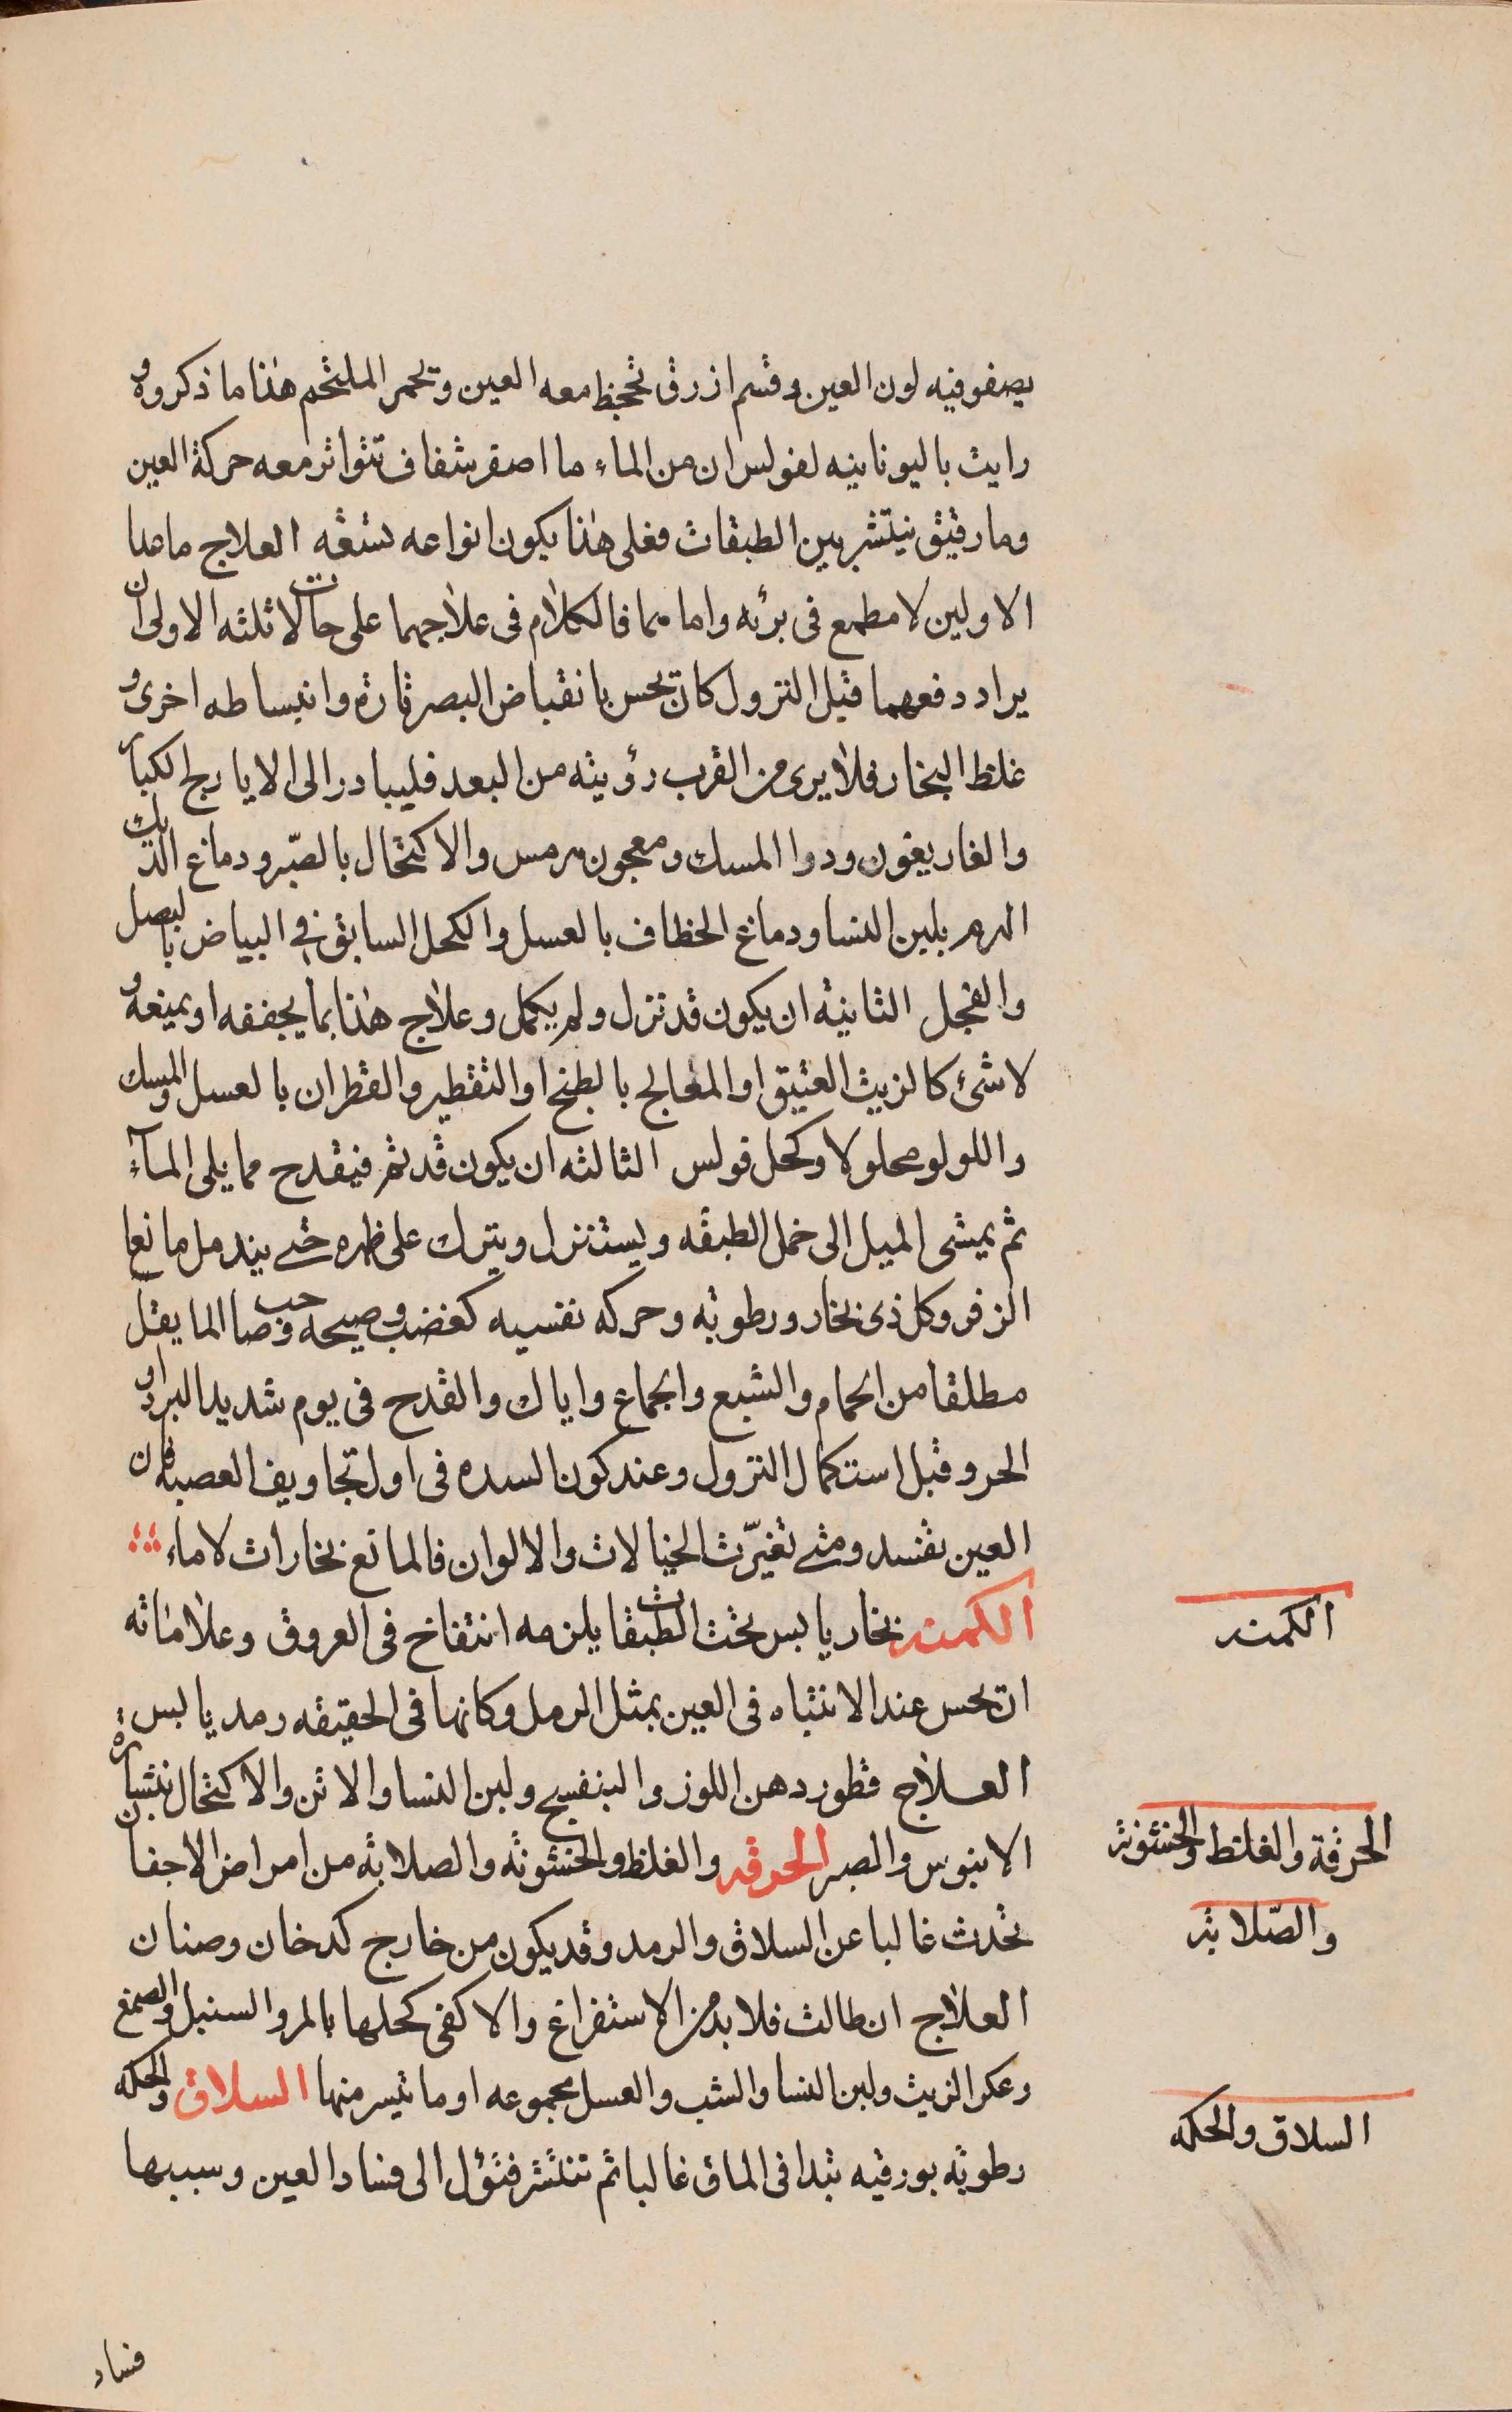 يصفو فيه لون العين وقسم ازرق تجحظ معه العين وتحمر الملتحم هذا ما ذكروه و
رايت باليونانيه لفولس ان من الماء ما اصفر شفاف تتواتر معه حركة العين
وما رقيق ينتشر بين الطبقات فعلى هذا يكون انواعه تسعه العلاج ماعدا
الاولين لا مطمع فى برئه واما هما فالكلام فى علاجهما على حالات ثلثه الاولى ان
يراد دفعهما قبل النزول كان تحس بانقباض البصر تارة وانبساطه اخرى و
غلظ البخار فلا يرى من القرب رؤيته من البعد فليبادر الى الايارج الكبار
والغاريقون ودوا المسك ومعجون هرمس والاكتحال بالصّبر ودماغ الديك
الهرم بلبن النسا ودماغ الخطاف بالعسل والكحل السابق فى البياض بالبصل
والفجل الثانية ان يكون قد نزل ولم يكمل وعلاج هذا بما يجففه او يمنعه و
لا شئ كالزيت العتيق او المعالج بالطبخ او التقطير والقطران بالعسل والمسك
واللولو محلولا وكحل فولس الثالثه ان يكون قد تم فيقدح مما يلى المآء
ثم يمشى الميل الى خمل الطبقه ويستنزل ويترك على ظهره حتى يندمل مانعا
الزفر وكل ذى بخار ورطوبه وحركه نفسيه كغضب وصيحه وصاحب الما يقلل
مطلقا من الحمام والشبع والجماع واياك والقدح فى يوم شديد البرد او
الحر وقبل استكمال النزول وعند كون السده فى اول تجاويف العصبه فان
العين تفسد ومتى تغيّرت الخيالات والالوان فالمانع بخارات لا ماء
الكمنه بخار يابس تحت الطبقات يلزمه انتفاخ فى العروق وعلاماته
ان تحس عند الانتباه فى العين بمثل الرمل وكانها فى الحقيقه رمد يابس
العلاج قطور دهن اللوز والبنفسج ولبن النسا والاتن والاكتحال بنشارة
الابنوس والصبر الحرقه والغلظ والخشونه والصلابه من امراض الاجفان
تحدث غالبا عن السلاق والرمد وقد يكون من خارج كدخان وصنان
العلاج ان طالت فلا بد من الاستفراغ والا كفى كحلها بالمر والسنبل والصمغ
وعكر الزيت ولبن النسا والشب والعسل مجموعه او ما تيسر منها السلاق والحكه
رطوبه بورقيه تبدا فى الماق غالبا ثم تنتشر فتؤل الى فساد العين وسببها
فساد
الكمنه
الحرقة والغلظ والخشونه
والصّلابه
السلاق والحكه